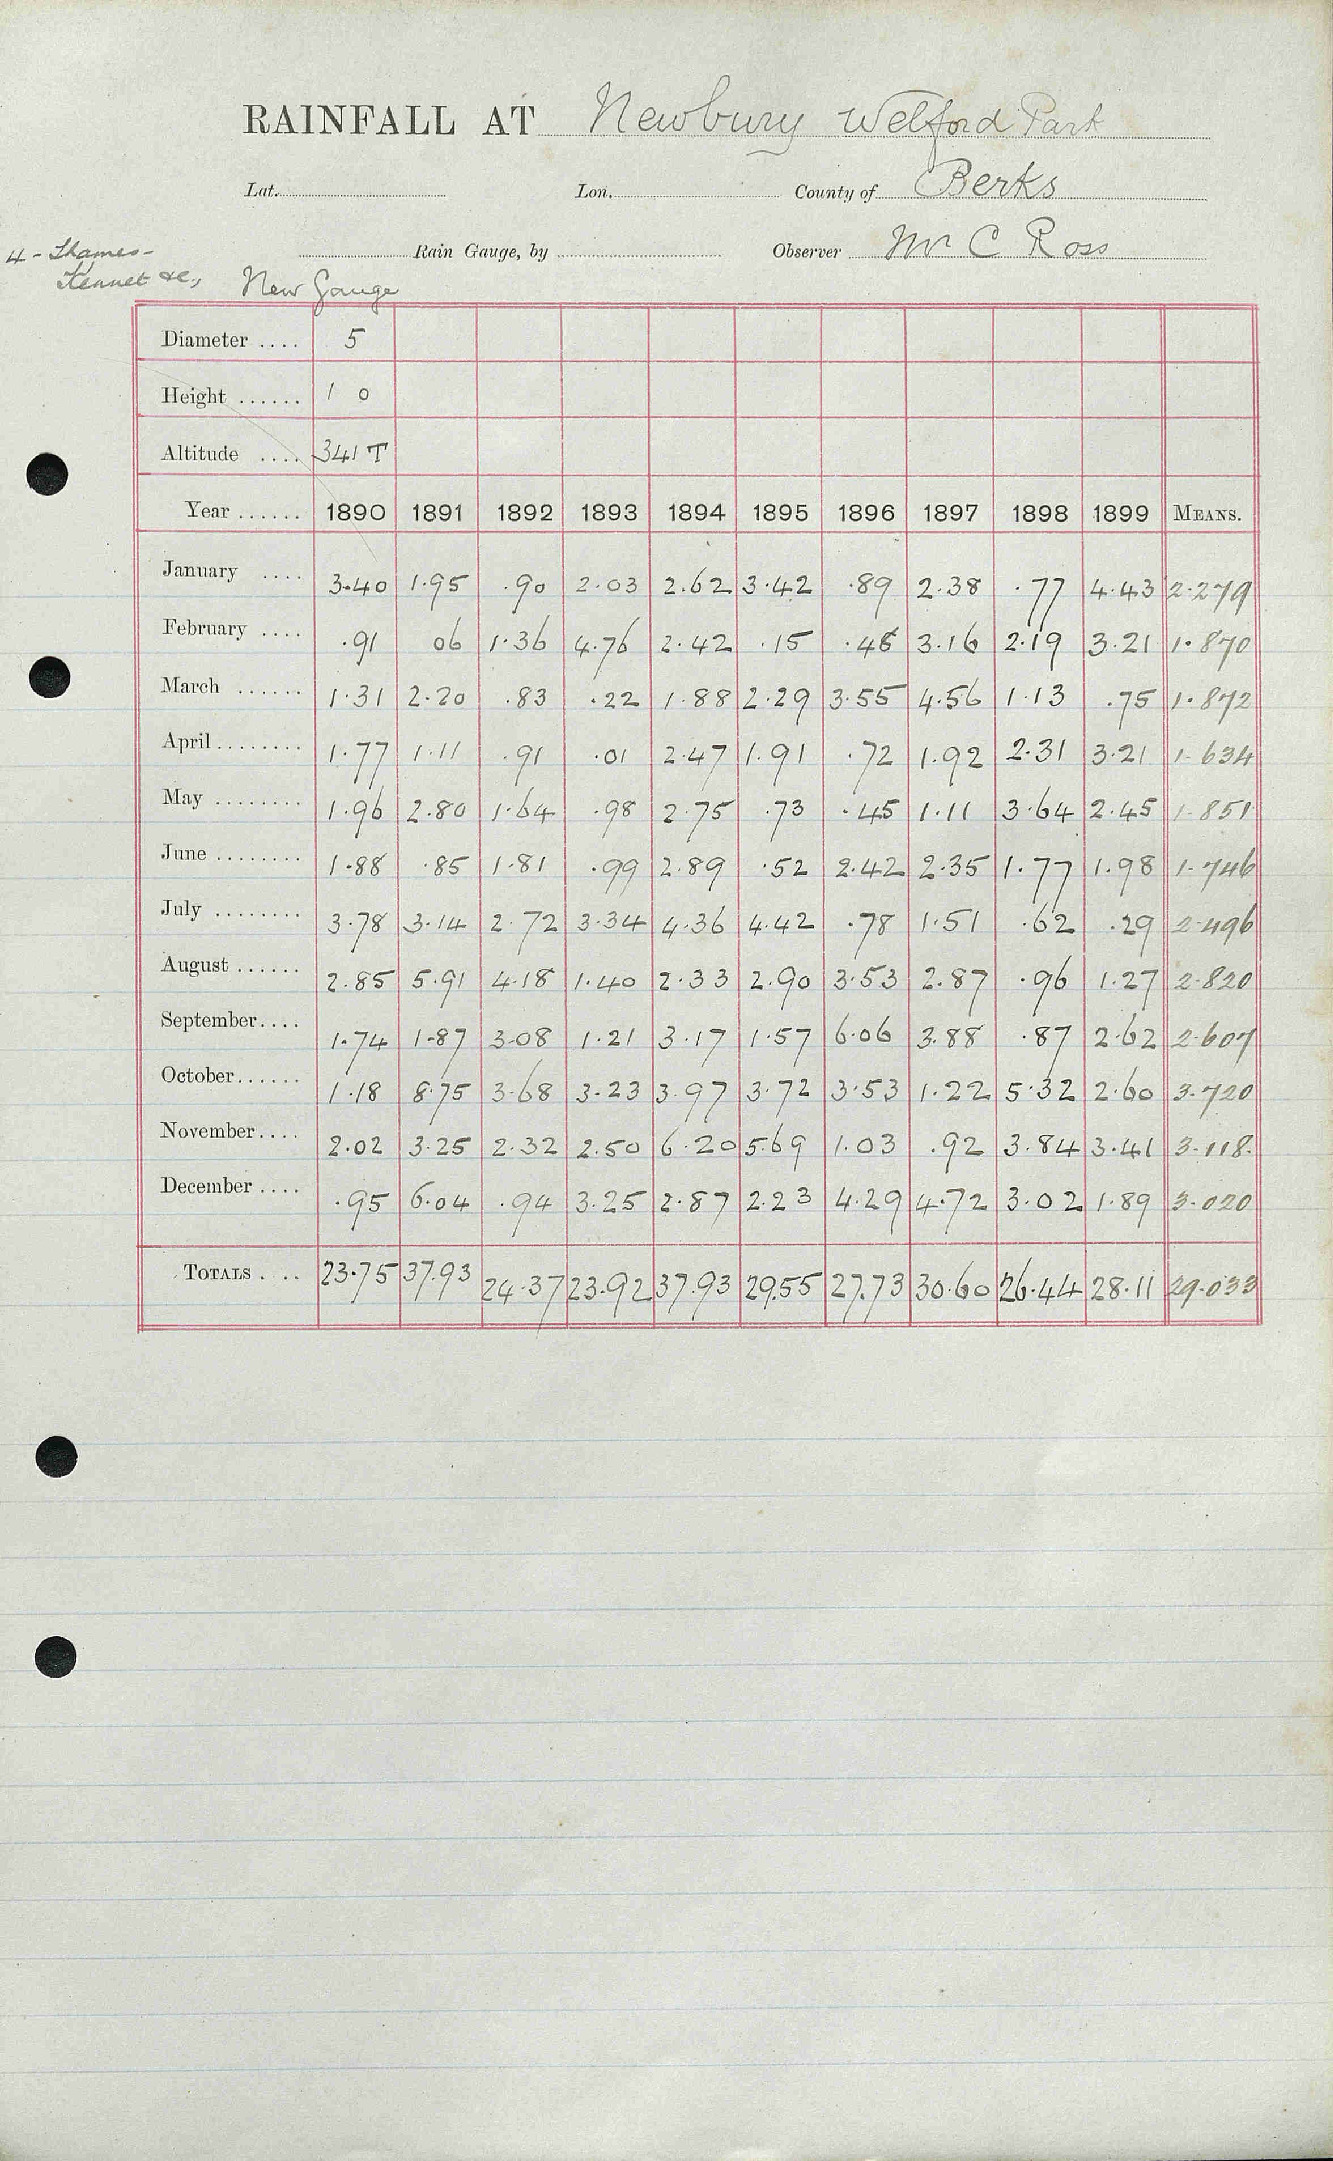 RAINFALL AT Newbury Welford Park
Lat. Lon. County of Berks
4 - Thames - Rain Gauge, by Observer Mr C Ross
Kennet &c., New Gauge
Diameter .... 5
Height ...... 1 0
Altitude .... 341 T
Year ...... 1890 1891 1892 1893 1894 1895 1896 1897 1898 1899 MEANS.
January .... 3.40 1.95 .90 2.03 2.62 3.42 .89 2.38 .77 4.43 2.279
February .... .91 06 1.36 4.76 2.42 .15 .48 3.16 2.19 3.21 1.870
March ...... 1.31 2.20 .83 .22 1.88 2.29 3.55 4.56 1.13 .75 1.872
April ........ 1.77 1.11 .91 .01 2.47 1.91 .72 1.92 2.31 3.21 1.634
May ........ 1.96 2.80 1.64 .98 2.75 .73 .45 1.11 3.64 2.45 1.851
June ........ 1.88 .85 1.81 .99 2.89 .52 2.42 2.35 1.77 1.98 1.746
July ........ 3.78 3.14 2.72 3.34 4.36 4.42 .78 1.51 .62 .29 2.496
August ...... 2.85 5.91 4.18 1.40 2.33 2.90 3.53 2.87 .96 1.27 2.820
September.... 1.74 1.87 3.08 1.21 3.17 1.57 6.06 3.88 .87 2.62 2.607
October...... 1.18 8.75 3.68 3.23 3.97 3.72 3.53 1.22 5.32 2.60 3.720
November.... 2.02 3.25 2.32 2.50 6.20 5.69 1.03 .92 3.84 3.41 3.118
December .... .95 6.04 .94 3.25 2.87 2.23 4.29 4.72 3.02 1.89 3.020
TOTALS .... 23.75 37.93 24.37 23.92 37.93 29.55 27.73 30.60 26.44 28.11 29.033